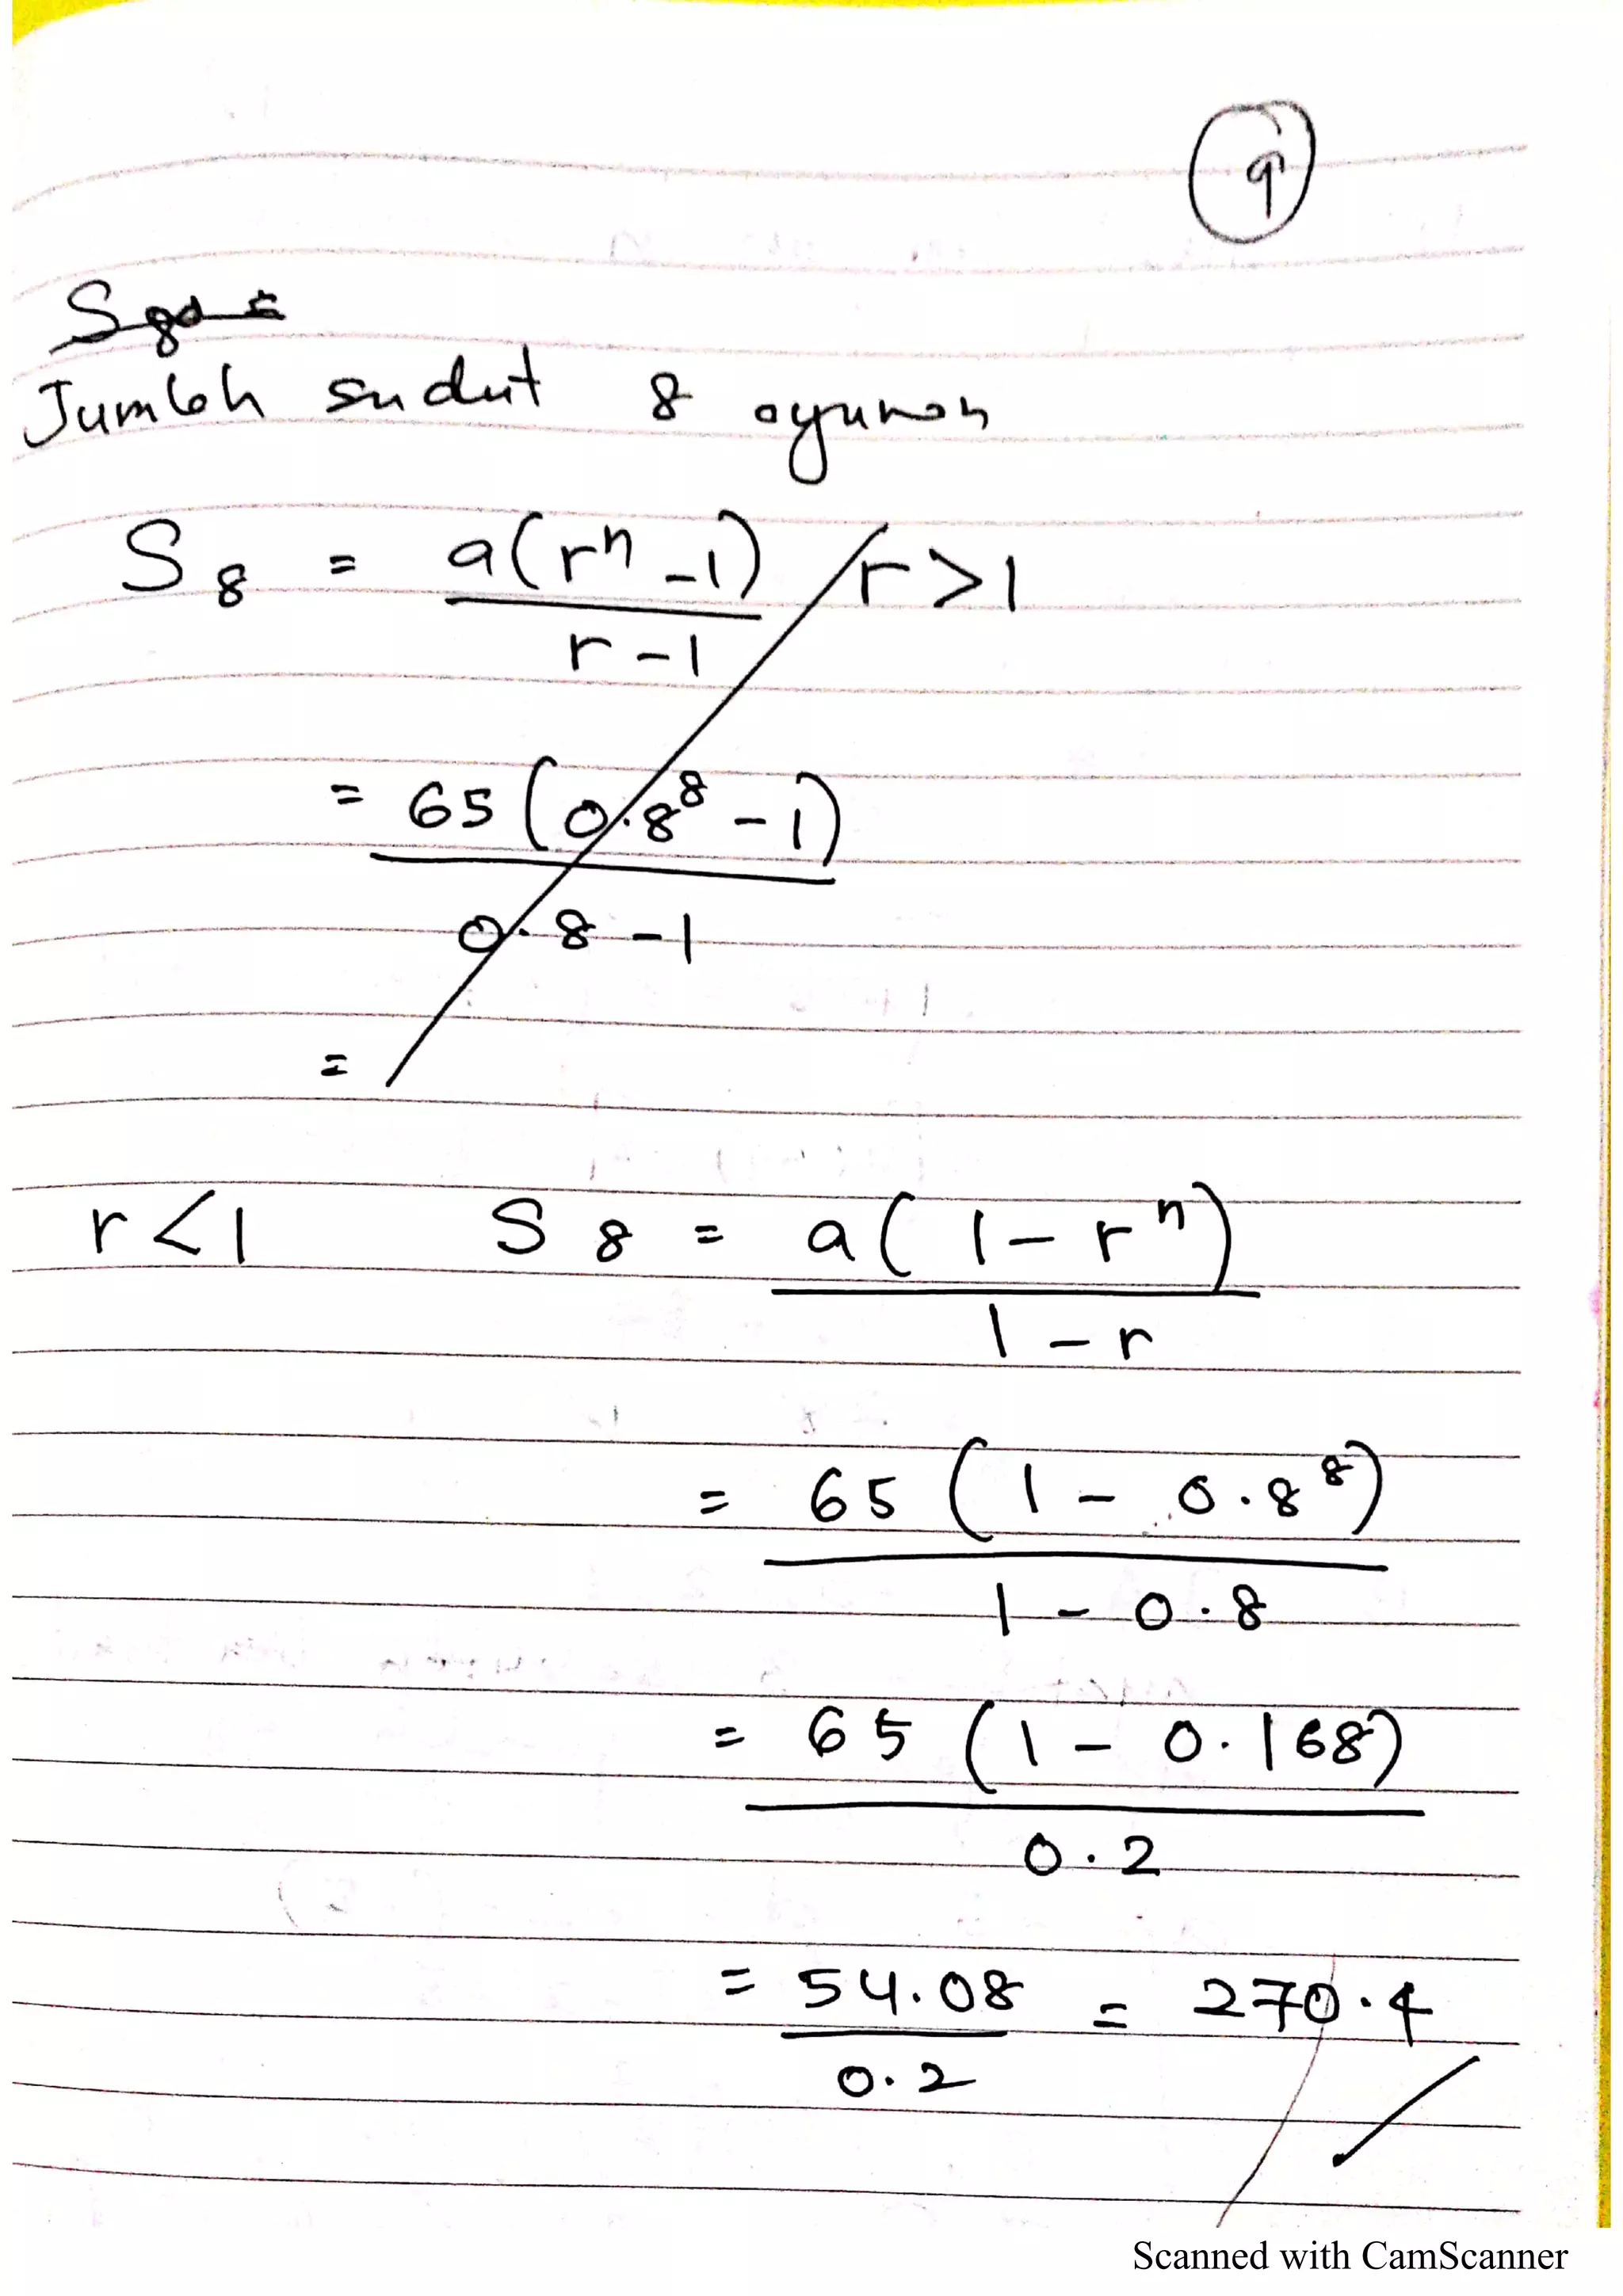 9
S8d =
Jumlah sudut 8 ayunan
S8 = a(r^n - 1) / r>1
r - 1
= 65(0.8^8 - 1)
0.8 - 1
=
r<1 S8 = a(1 - r^n)
1 - r
= 65(1 - 0.8^8)
1 - 0.8
= 65(1 - 0.168)
0.2
= 54.08 = 270.4
0.2
Scanned with CamScanner